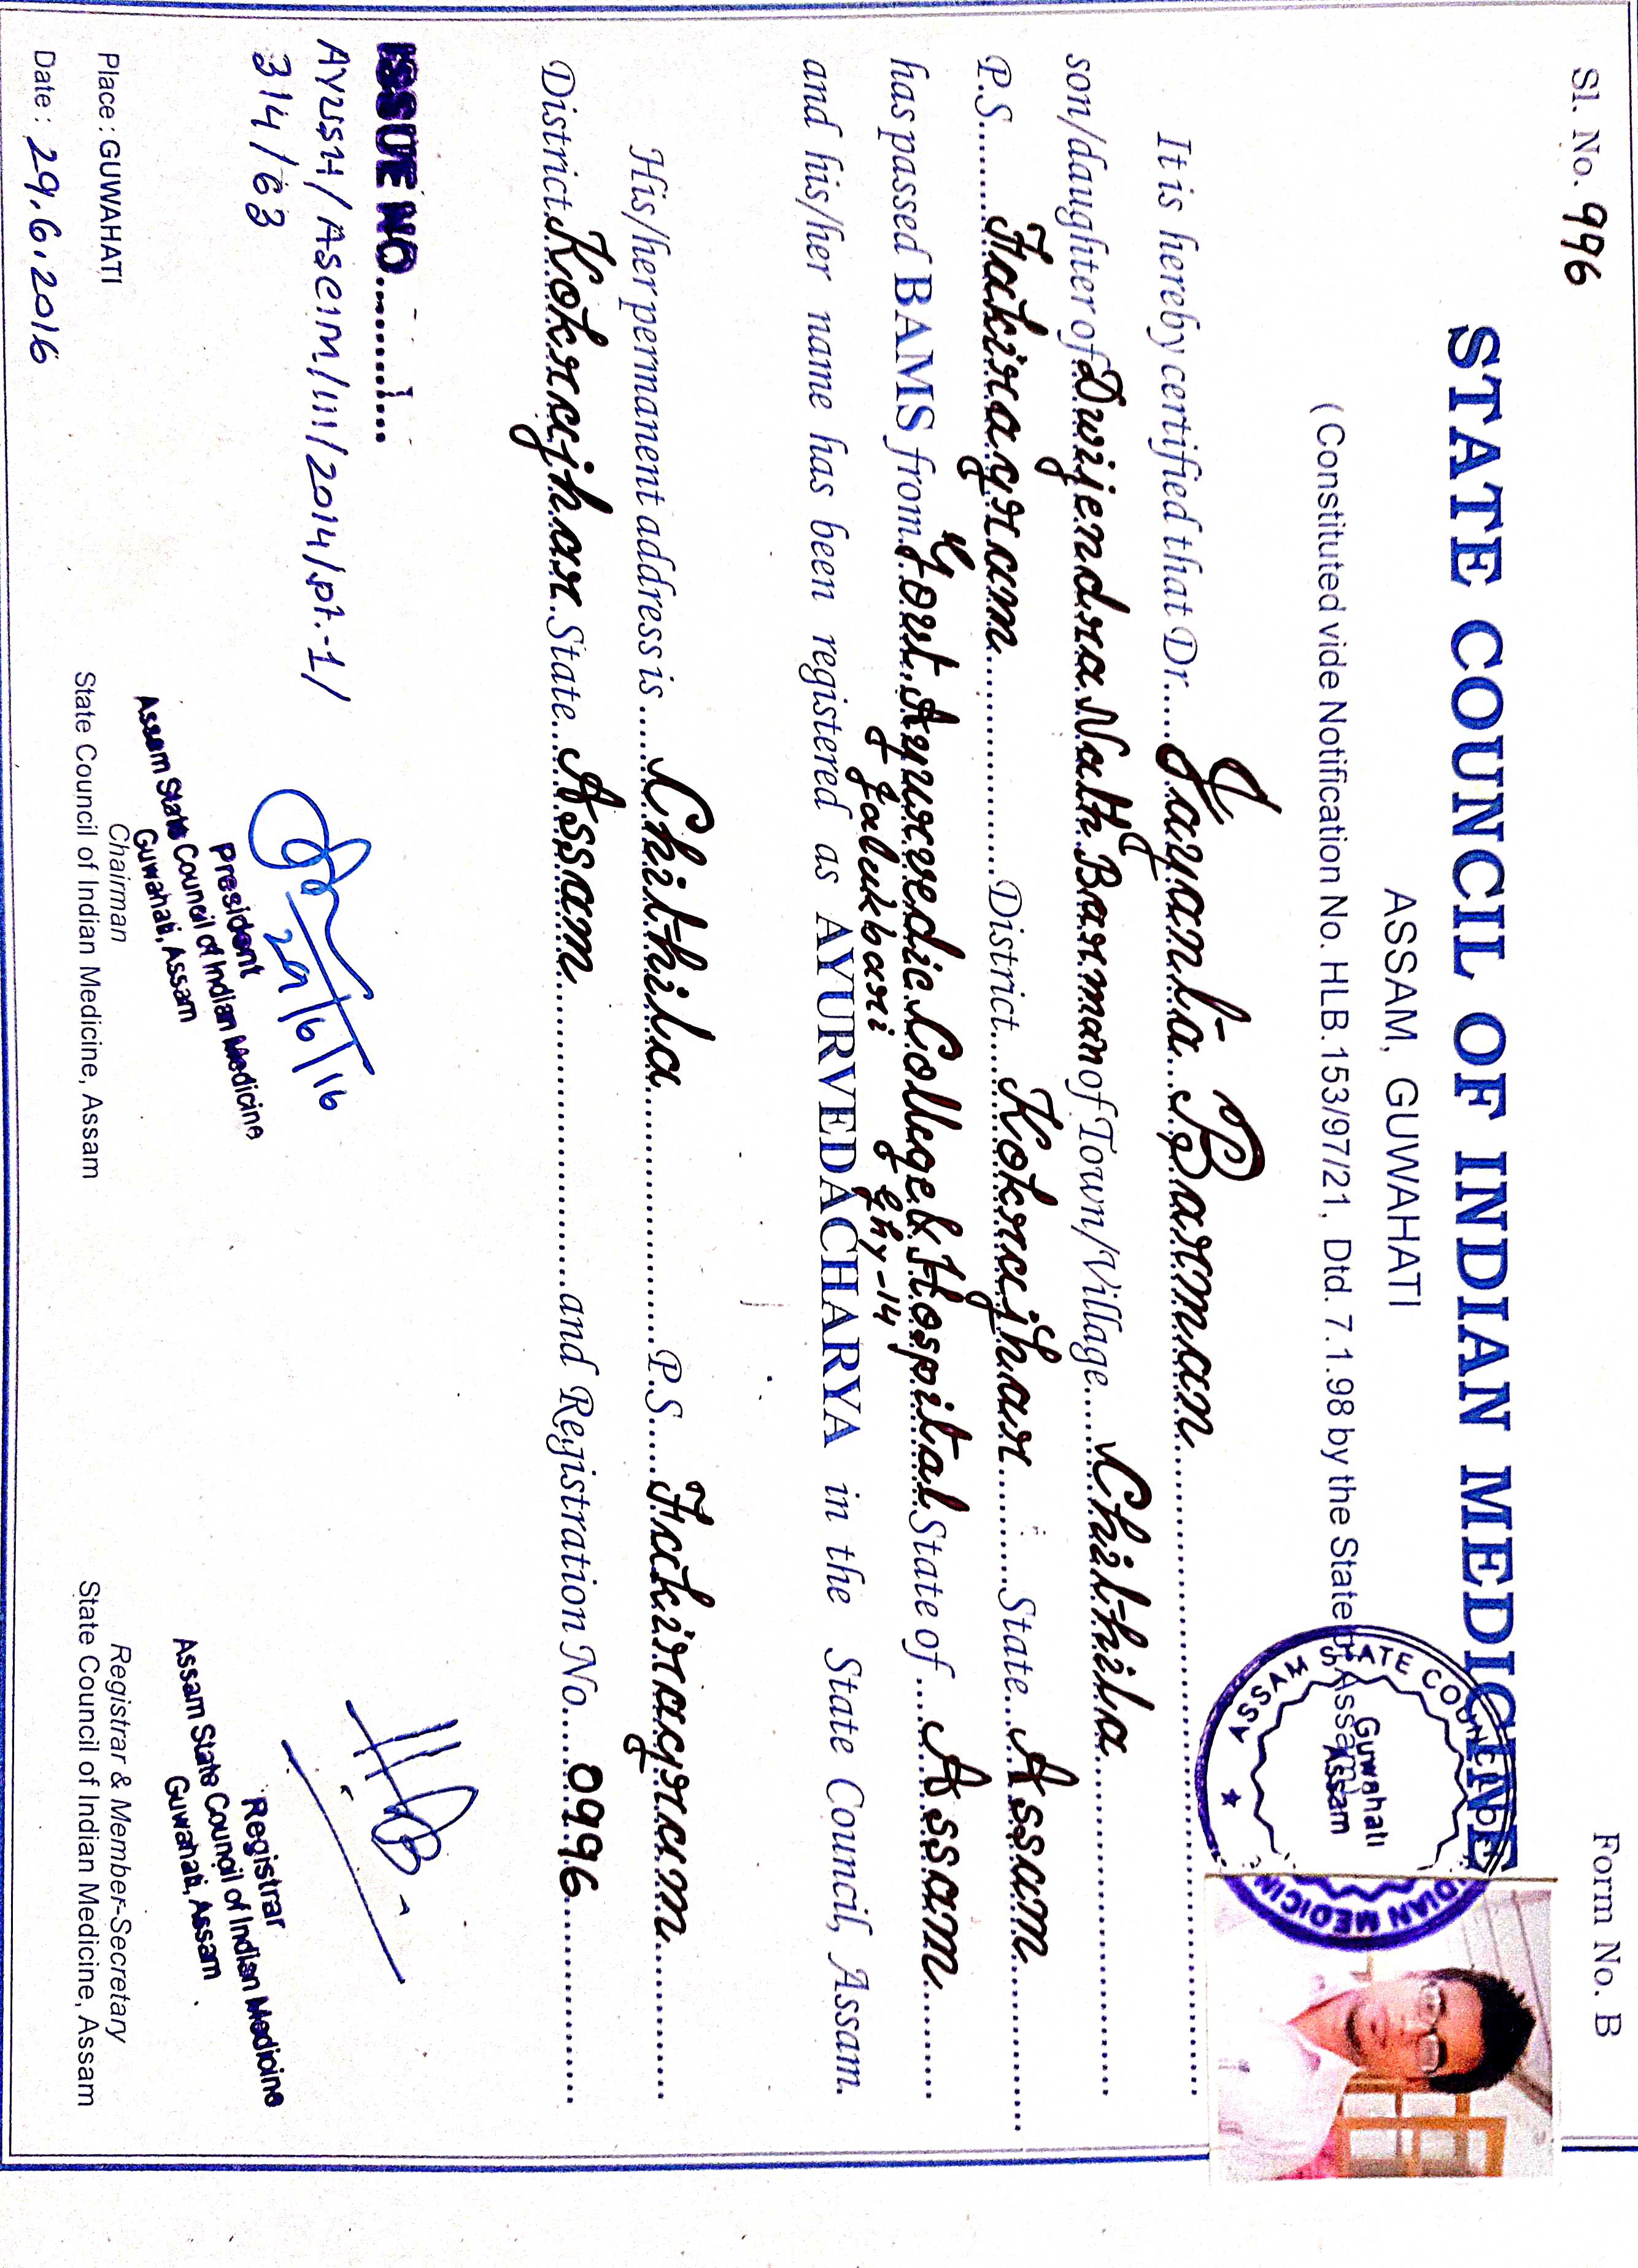 Sl. No. 996
Form No. B
STATE COUNCIL OF INDIAN MEDICINE
ASSAM, GUWAHATI
(Constituted vide Notification No. HLB.153/97/21, Dtd. 7.1.98 by the State of Assam)
ASSAM STATE COUNCIL OF INDIAN MEDICINE
Guwahati
Assam
It is hereby certified that Dr.... Jayanta Barman
son/daughter of Dwijendra Nath Barman of Town/Village.... Chithila
P.S. Fakiragram District.... Kokrajhar State... Assam
has passed BAMS from Govt. Ayurvedic College & Hospital State of .... Assam
Jalukbari Ghy-14
and his/her name has been registered as AYURVEDACHARYA in the State Council, Assam.
His/her permanent address is .... Chithila P.S.... Fakiragram
District Kokrajhar State... Assam and Registration No.... 0996
ISSUE NO.
AYUSH/ASCIM/111/2014/pt.-1/
314/63
29/6/16
President
Assam State Council of Indian Medicine
Guwahati, Assam
Registrar
Assam State Council of Indian Medicine
Guwahati, Assam
Place : GUWAHATI
Date : 29.6.2016
Chairman
State Council of Indian Medicine, Assam
Registrar & Member-Secretary
State Council of Indian Medicine, Assam